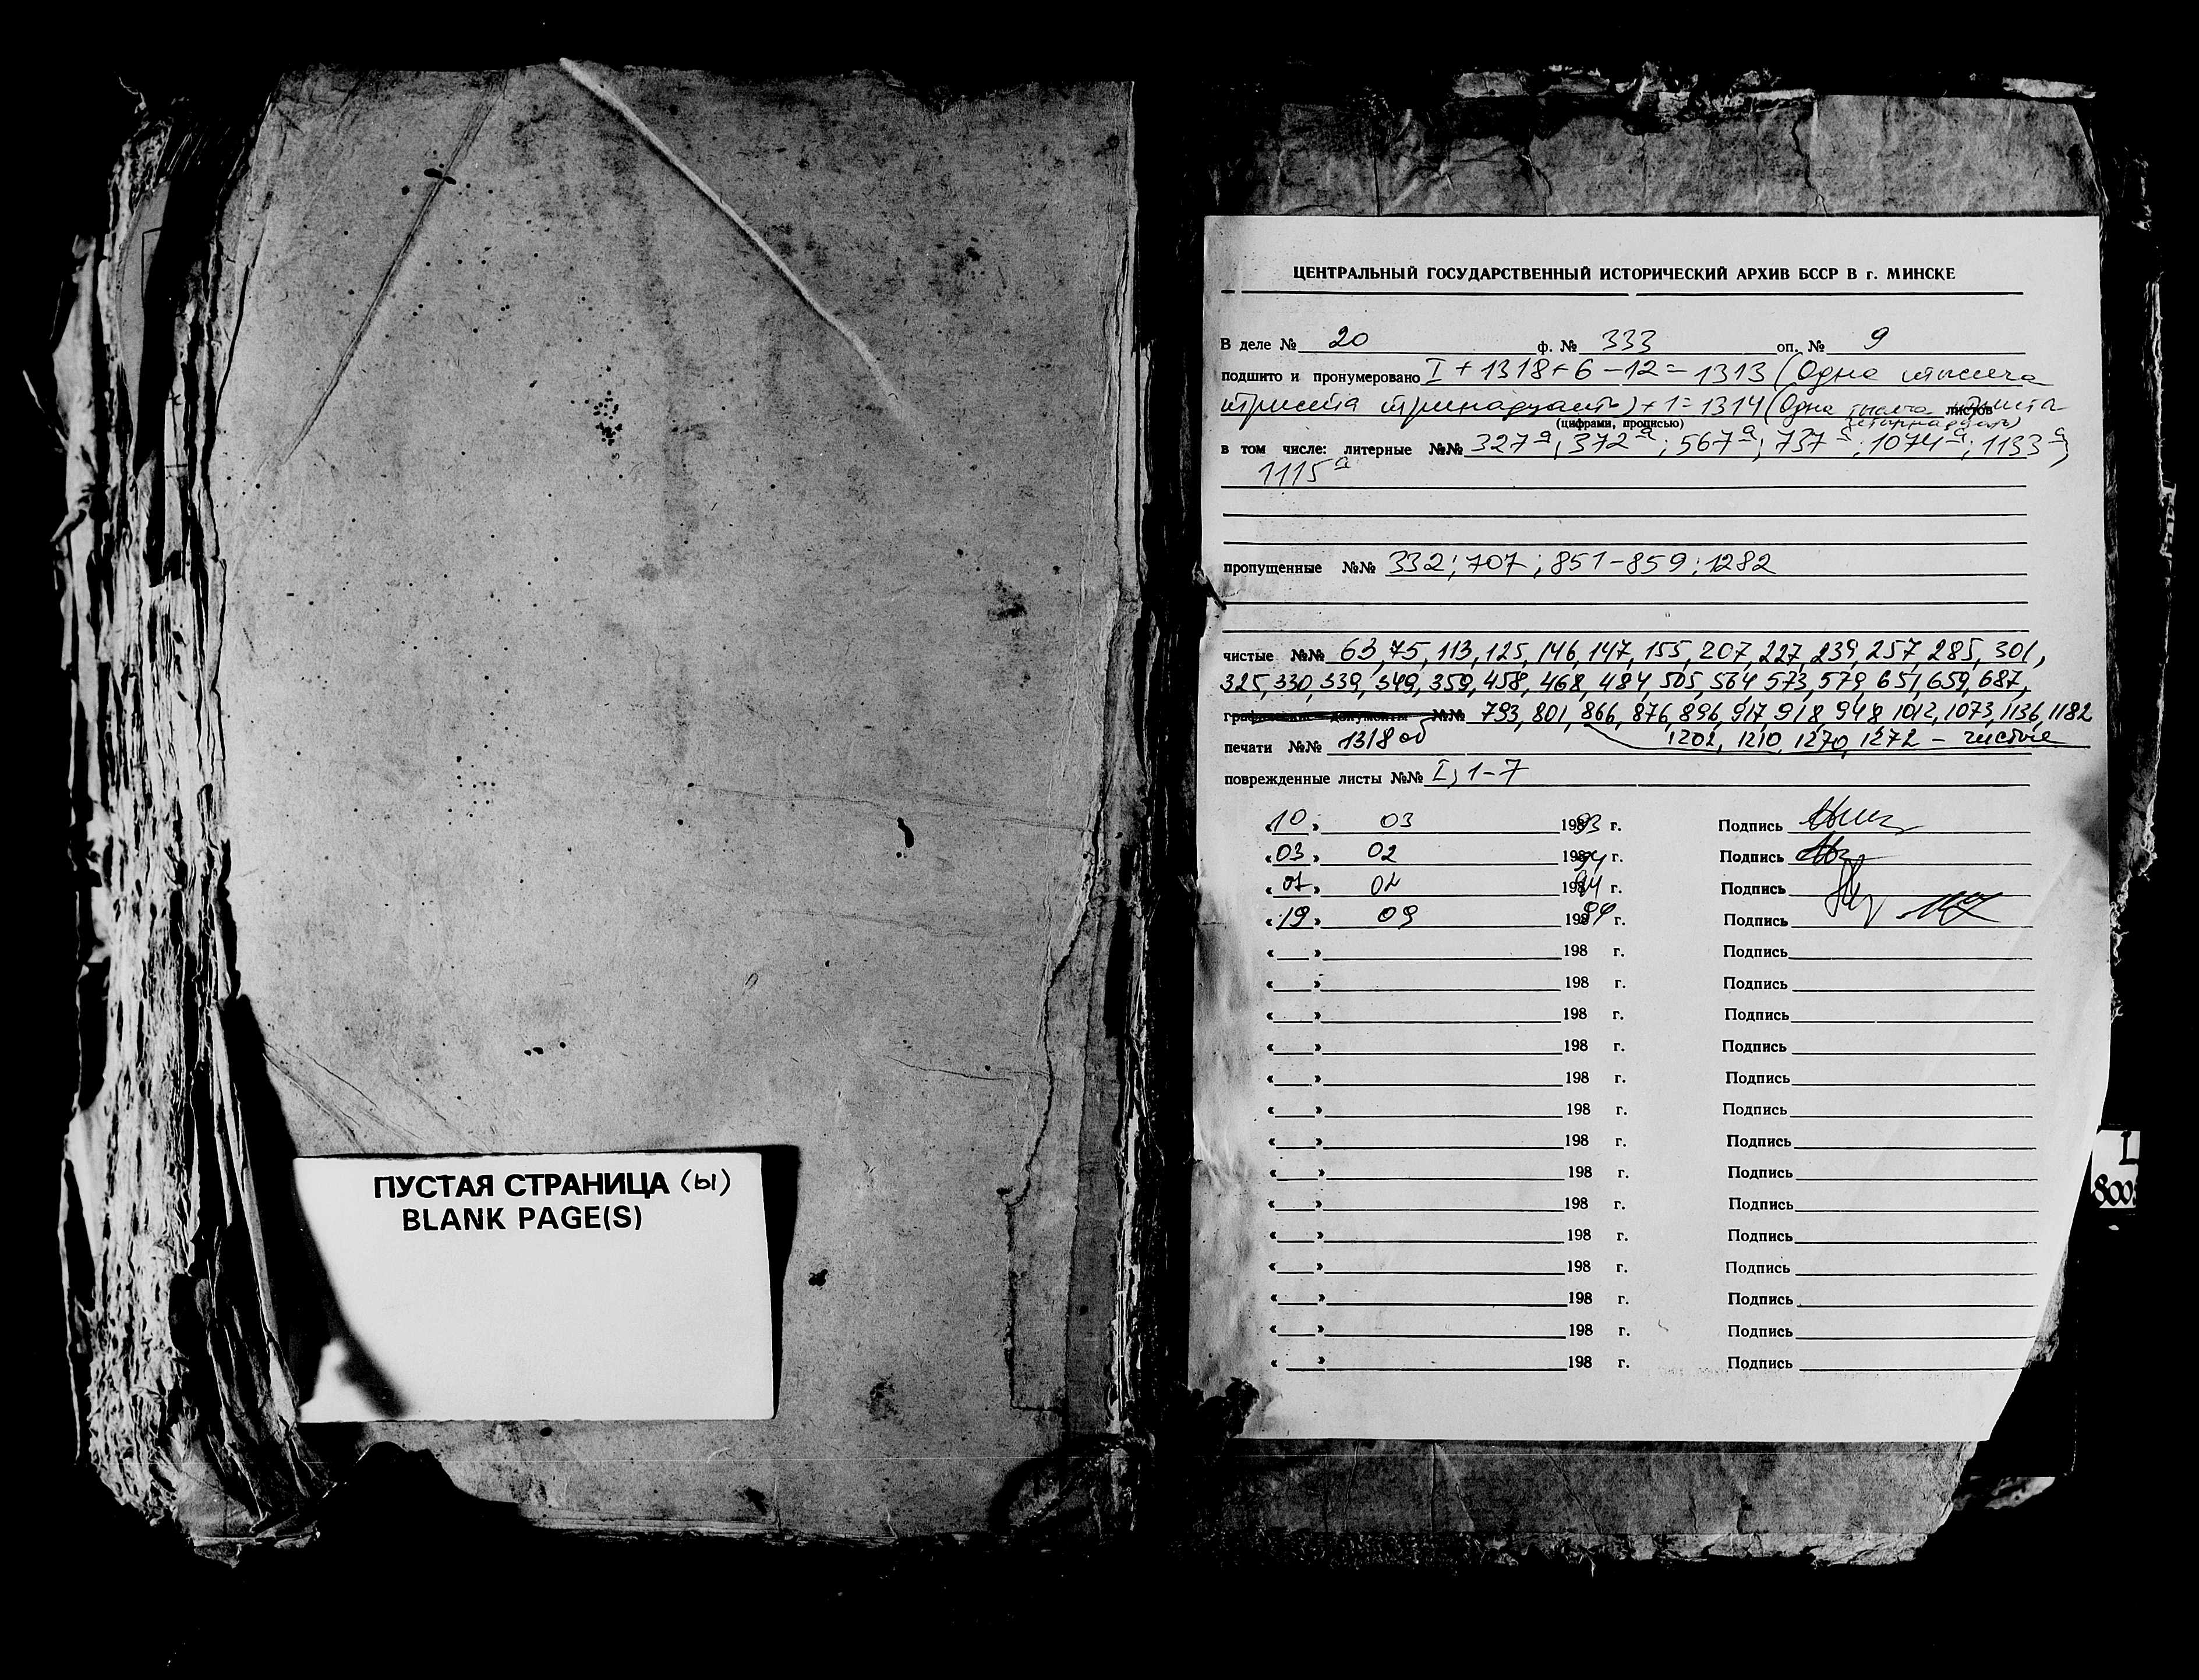 ПУСТАЯ СТРАНИЦА (ы)
BLANK PAGE(S)
ЦЕНТРАЛЬНЫЙ ГОСУДАРСТВЕННЫЙ ИСТОРИЧЕСКИЙ АРХИВ БССР В г. МИНСКЕ
В деле № 20 ф. № 333 оп. № 9
подшито и пронумеровано I + 1318 + 6 - 12 = 1313 (Одна тысяча
триста тринадцать) + 1 = 1314 (Одна тысяча триста листов
(цифрами, прописью) четырнадцать)
в том числе: литерные №№ 327а; 372а; 567а; 737а; 1074а; 1133а;
1115а
пропущенные №№ 332; 707; 851-859; 1282
чистые №№ 63, 75, 113, 125, 146, 147, 155, 207, 227, 239, 257, 285, 301,
325, 330, 339, 349, 359, 458, 468, 484, 505, 564, 573, 579, 651, 659, 687,
графические документы №№ 793, 801, 866, 876, 896, 917, 918, 948, 1012, 1073, 1136, 1182
1202, 1210, 1270, 1272 - чистые
печати №№ 1318 об
поврежденные листы №№ I, 1-7
«10» 03 1993 г. Подпись
«03» 02 1994 г. Подпись
«07» 02 1994 г. Подпись
«19» 09 1994 г. Подпись
« » 198 г. Подпись
« » 198 г. Подпись
« » 198 г. Подпись
« » 198 г. Подпись
« » 198 г. Подпись
« » 198 г. Подпись
« » 198 г. Подпись
« » 198 г. Подпись
« » 198 г. Подпись
« » 198 г. Подпись
« » 198 г. Подпись
« » 198 г. Подпись
« » 198 г. Подпись
« » 198 г. Подпись